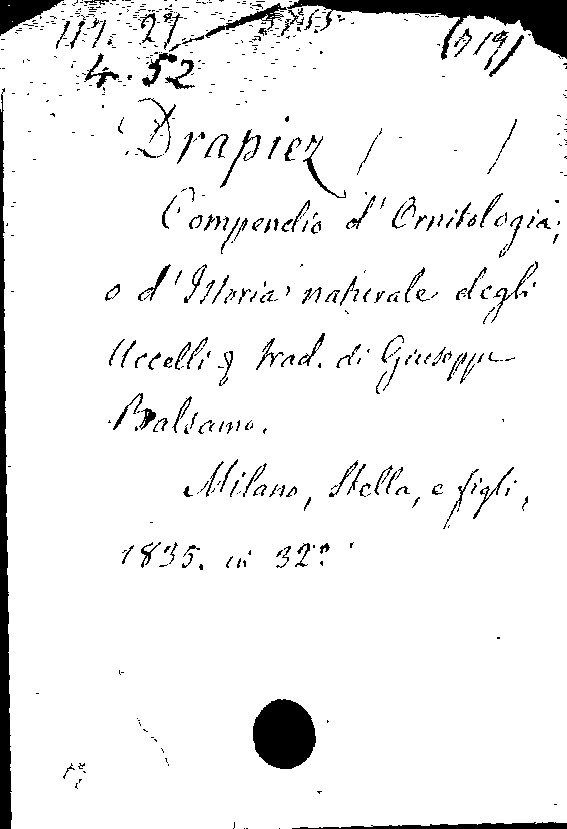 117. 27 (319)
4. 52
Drapiez / - - /
Compendio d' Ornitologia;
o d' Istoria naturale degli
Uccelli; trad. di Giuseppe
Balsamo.
Milano, Stella, e figli,
1835. in 32º